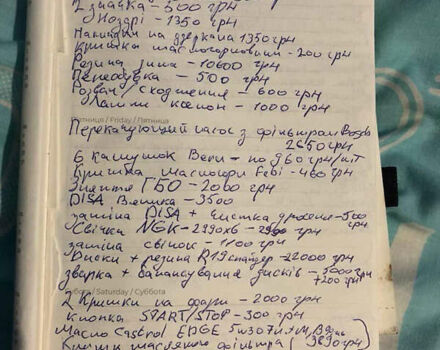 2 значка - 500 грн
Ноздрі - 1350 грн
Накладки на дзеркала 1350 грн
Кришка маслогорловини - 200 грн
Резина зима - 10600 грн
Переобувка - 500 грн
Розвал/сходження - 600 грн
Лампи ксенон - 1000 грн
П'ятниця / Friday / Пятница
Перекачующий насос з фільтром
2650 грн
6 катушок Beru - по 960 грн/шт
Кришка маслогори Febi - 460 грн
Зняття ГБО - 2000 грн
DISA Велика - 3500
заміна DISA + чистка дроселя - 500
грн
Свічки NGK - 2990х6 - грн
заміна свічок - 1100 грн
Диски + резина R19 - 22000 грн
зварка + балансування дисків - 3000 грн
+200 грн
Субота / Saturday / Суббота
2 Кришки на фари - 2000 грн
кнопка START/STOP - 300 грн
Масло Castrol EDGE 5w30
масляного фільтра (3890 грн)